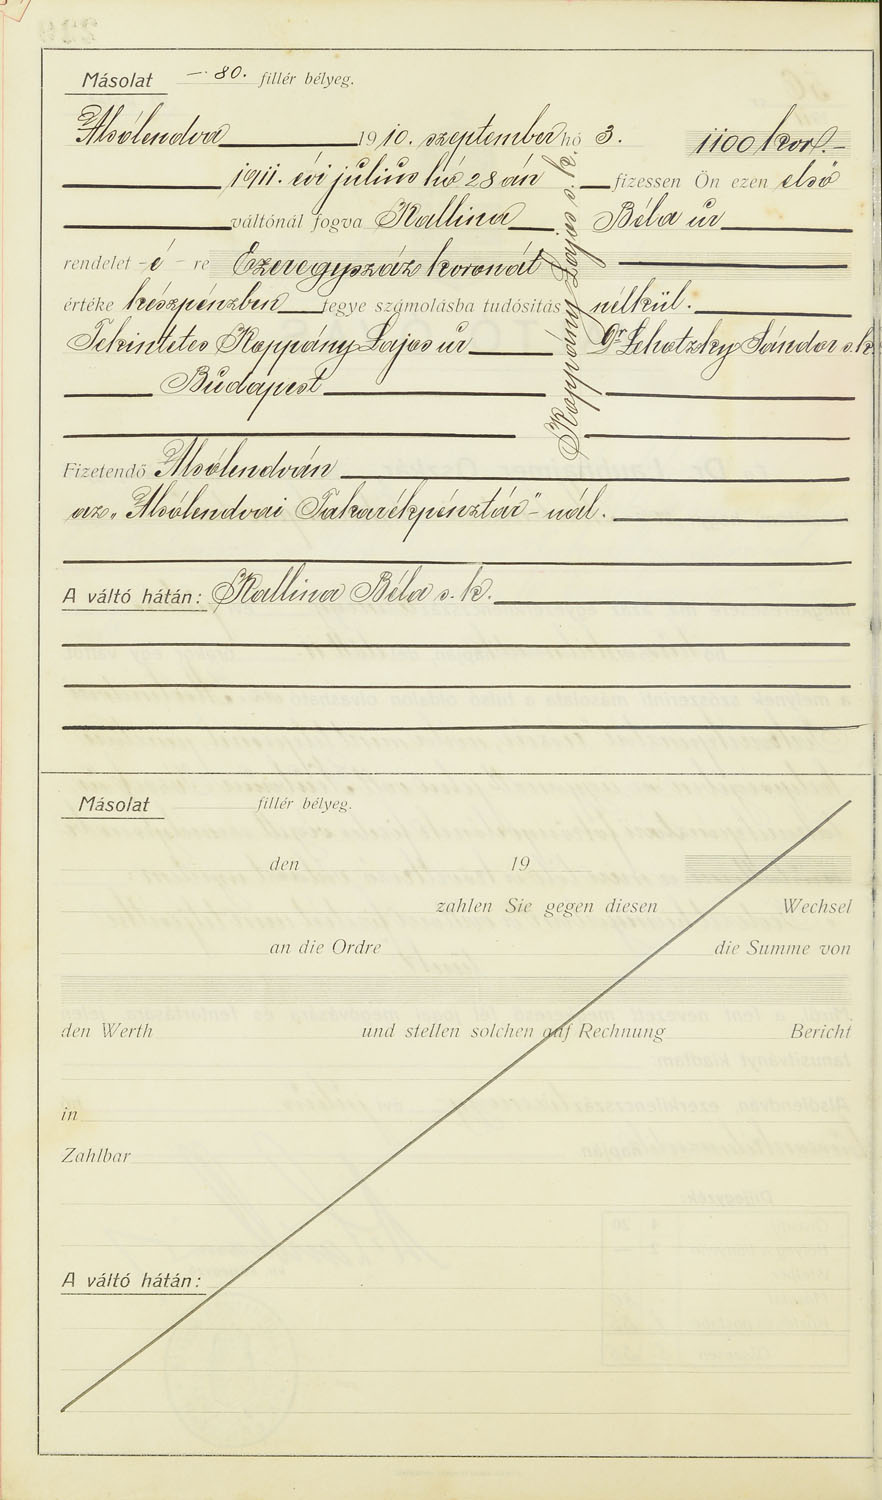 Másolat —·80. fillér bélyeg.
Alsólendva 1910. szeptember hó 3. 1100 kor.—
1911. évi július hó 28 án fizessen Ön ezen első
váltónál fogva Kallina Béla úr
rendelet -é - re Ezeregyszáz koronát
értéke készpénzben tegye számolásba tudósítás nélkül.
Tekintetes Koppány Lajos úr Dr Lehotzky Sándor s.k.
Budapest
Koppány Lajos s.k.
Fizetendő Alsólendván
az „Alsólendvai Takarékpénztár"-nál.
A váltó hátán: Kallina Béla s.k.
Másolat fillér bélyeg.
den 19
zahlen Sie gegen diesen Wechsel
an die Ordre die Summe von
den Werth und stellen solchen auf Rechnung Bericht
in
Zahlbar
A váltó hátán: